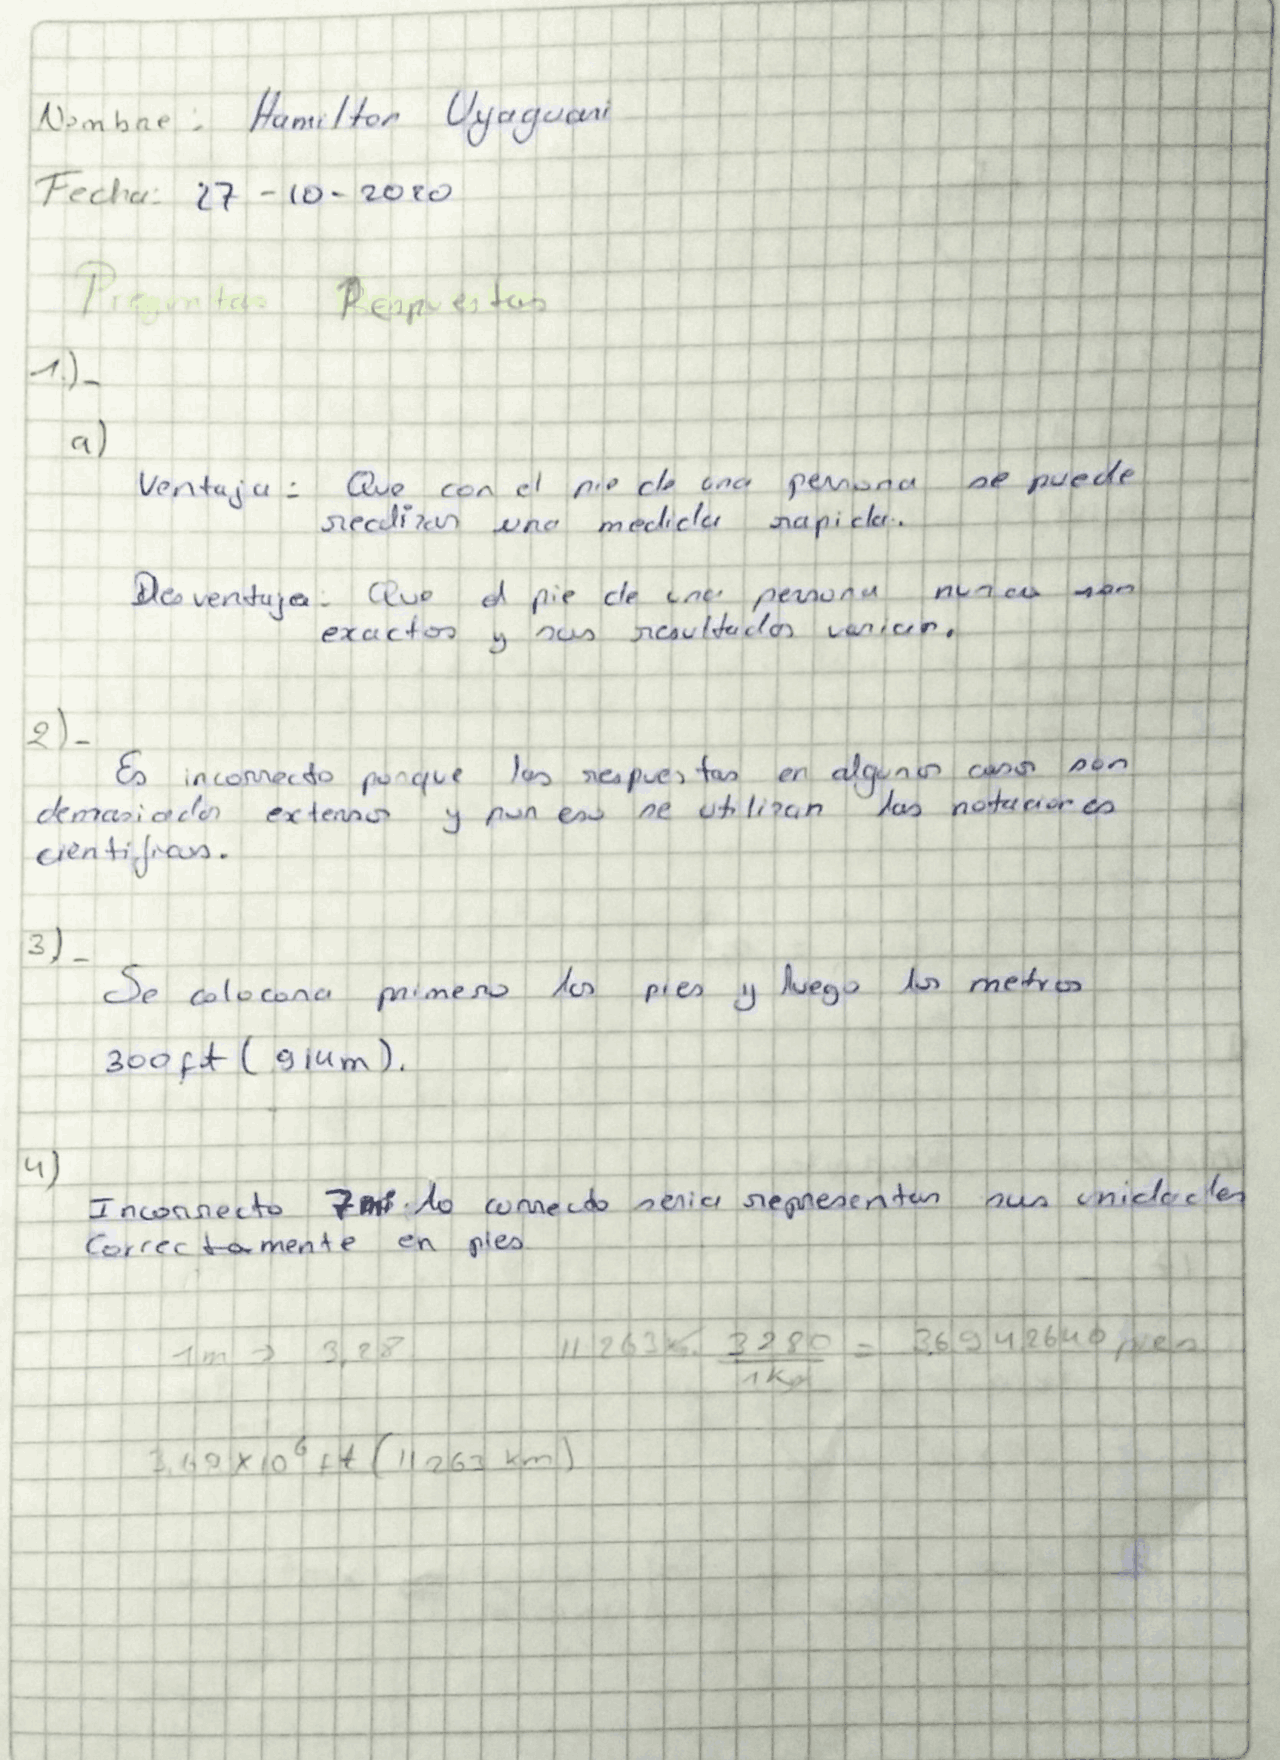 Nombre: Hamilton Uyaguari
Fecha: 27-10-2020
Preguntas Respuestas
1.)-
a)
Ventaja: Que con el pie de una persona se puede
realizar una medida rapida.
Desventaja: Que el pie de una persona nunca son
exactos y sus resultados varian.
2)-
Es incorrecto porque las respuestas en algunos casos son
demasiados extensos y por eso se utilizan las notaciones
cientificas.
3)-
Se colocaria primero los pies y luego los metros
300ft (91um).
4)
Incorrecto 7mi. lo correcto seria representar sus unidades
Correctamente en pies
1m → 3,28 11263K. 3280 = 36942640 pies
1Km
3.69×10⁶ ft (11263 km)